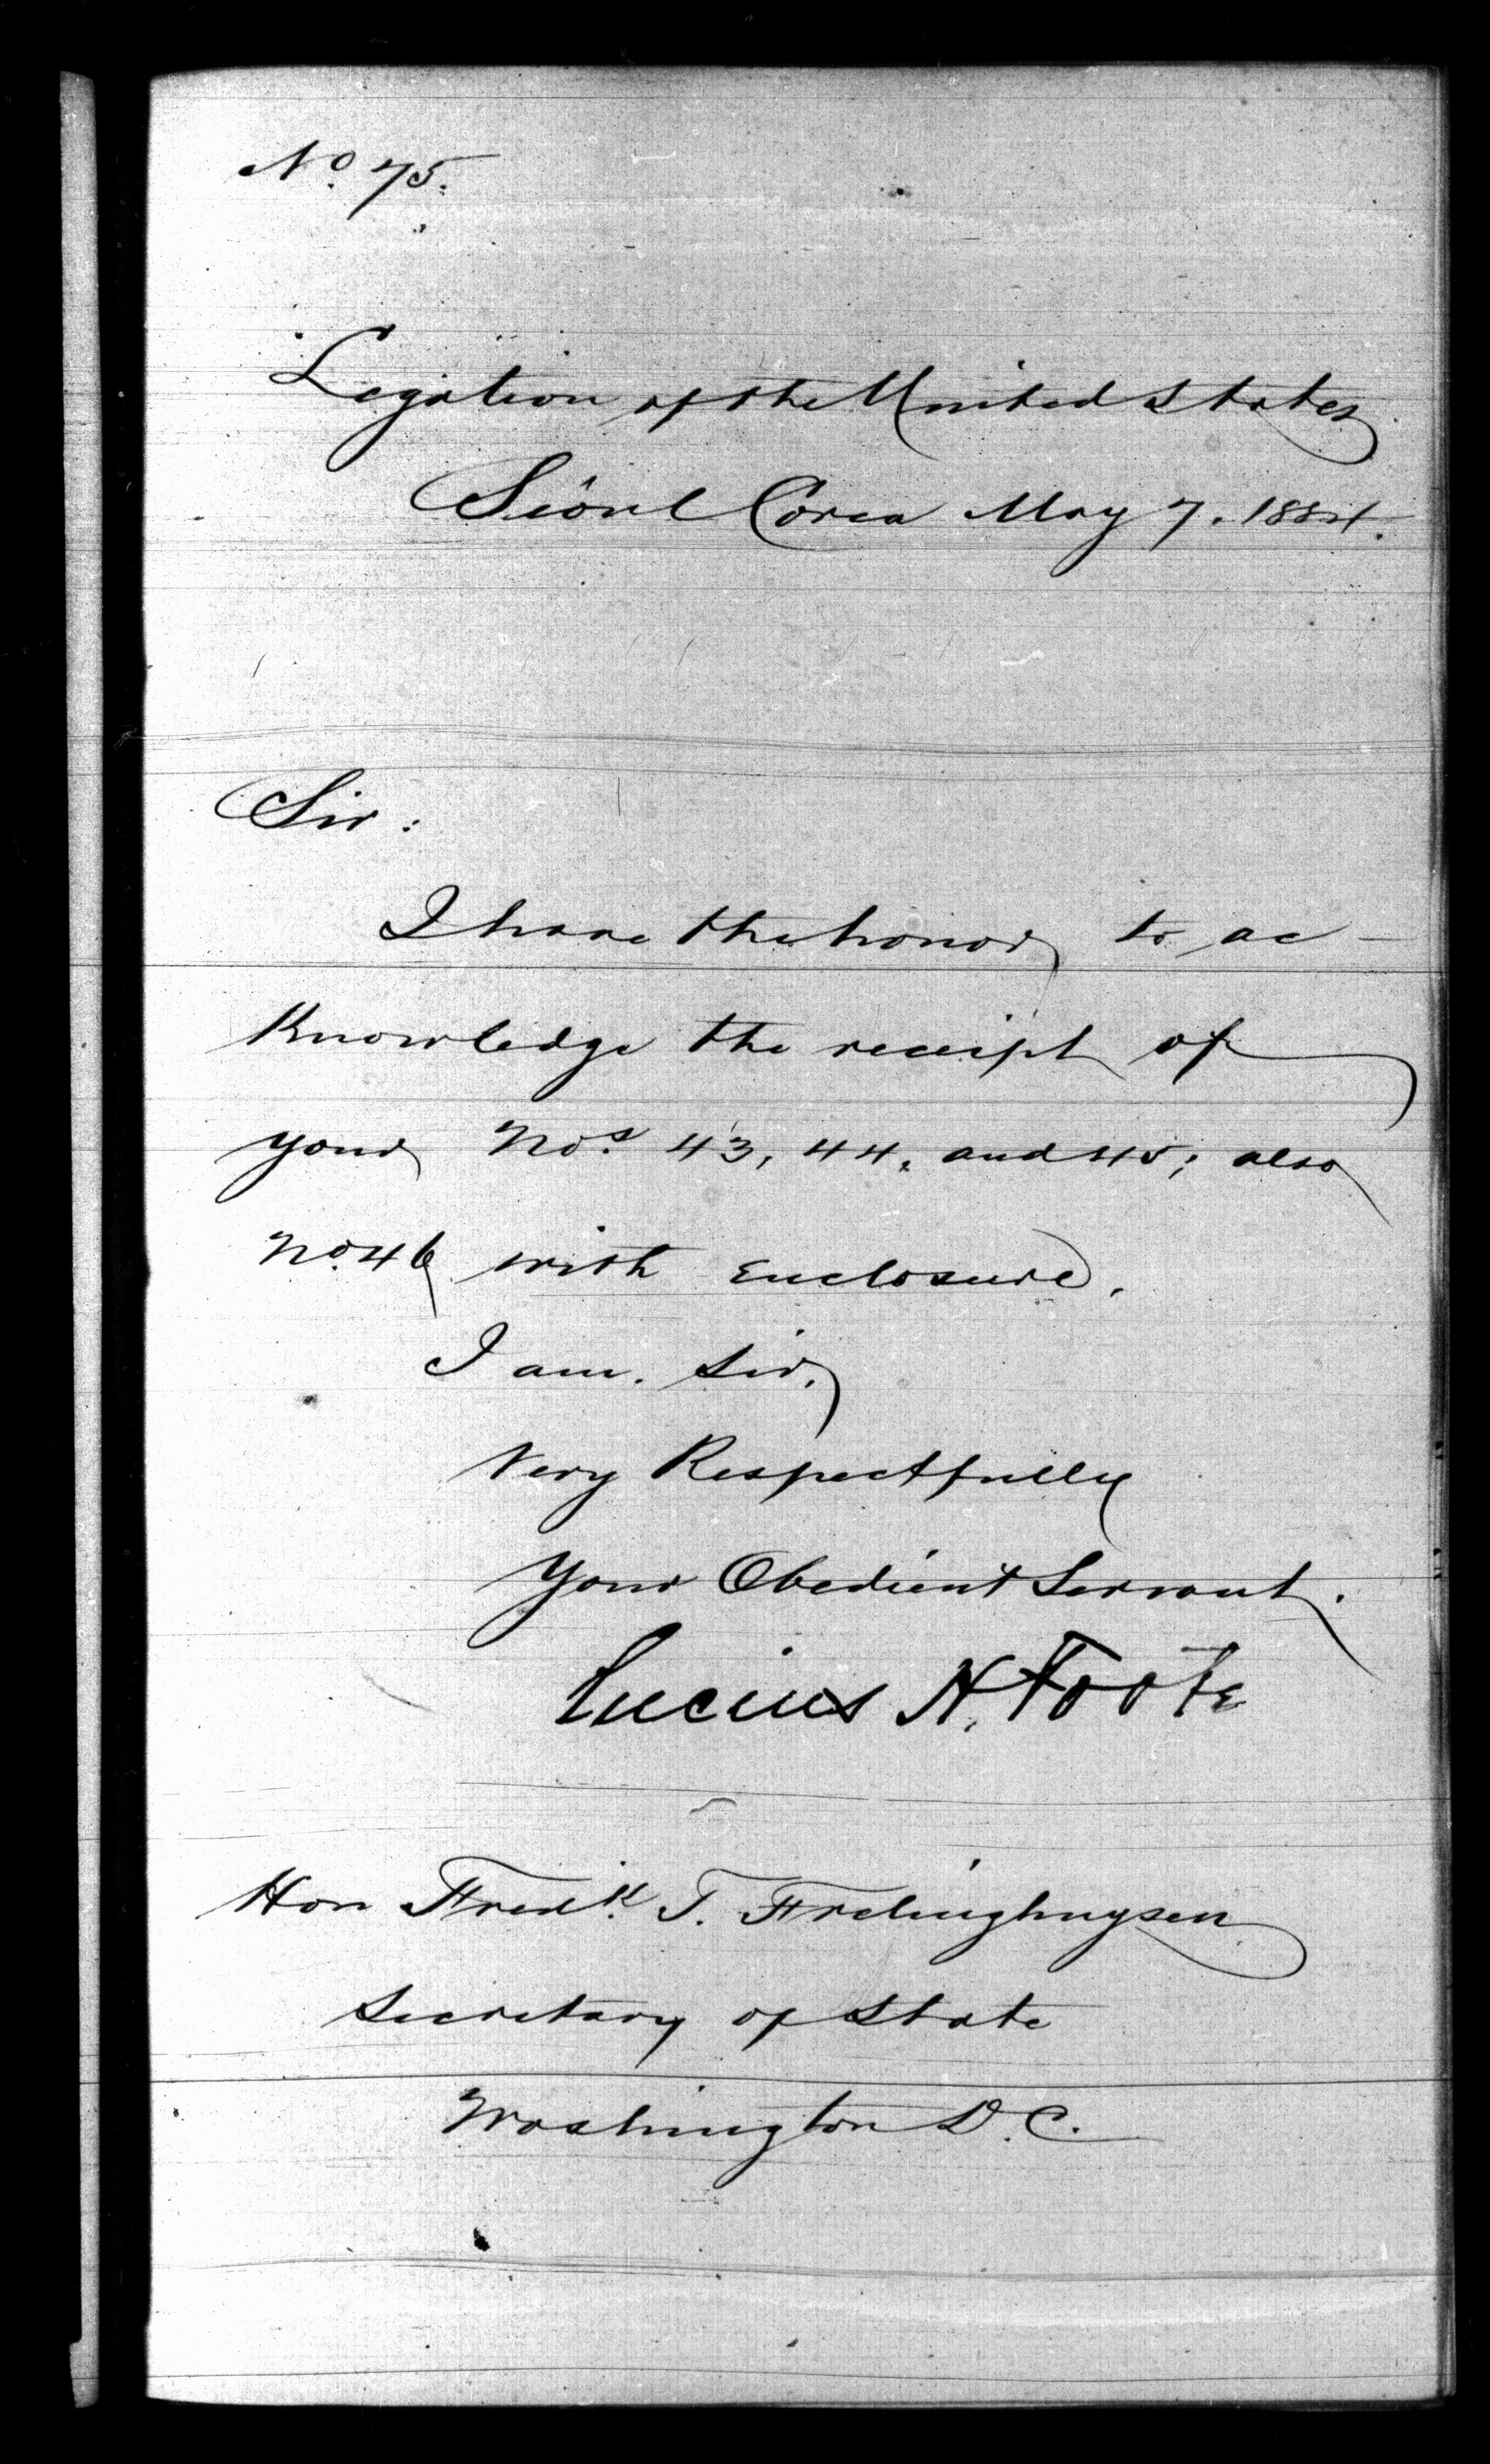 No. 75.
Legation of the United States
Sëoul Corea May 7. 1884.
Sir:
I have the honor to ac-
knowledge the receipt of
your Nos. 43, 44, and 45; also
No. 46 with Enclosure.
I am. Sir,
Very Respectfully
Your Obedient Servant.
Lucius H. Foote
Hon Fredk. T. Frelinghuysen
Secretary of State
Washington D.C.